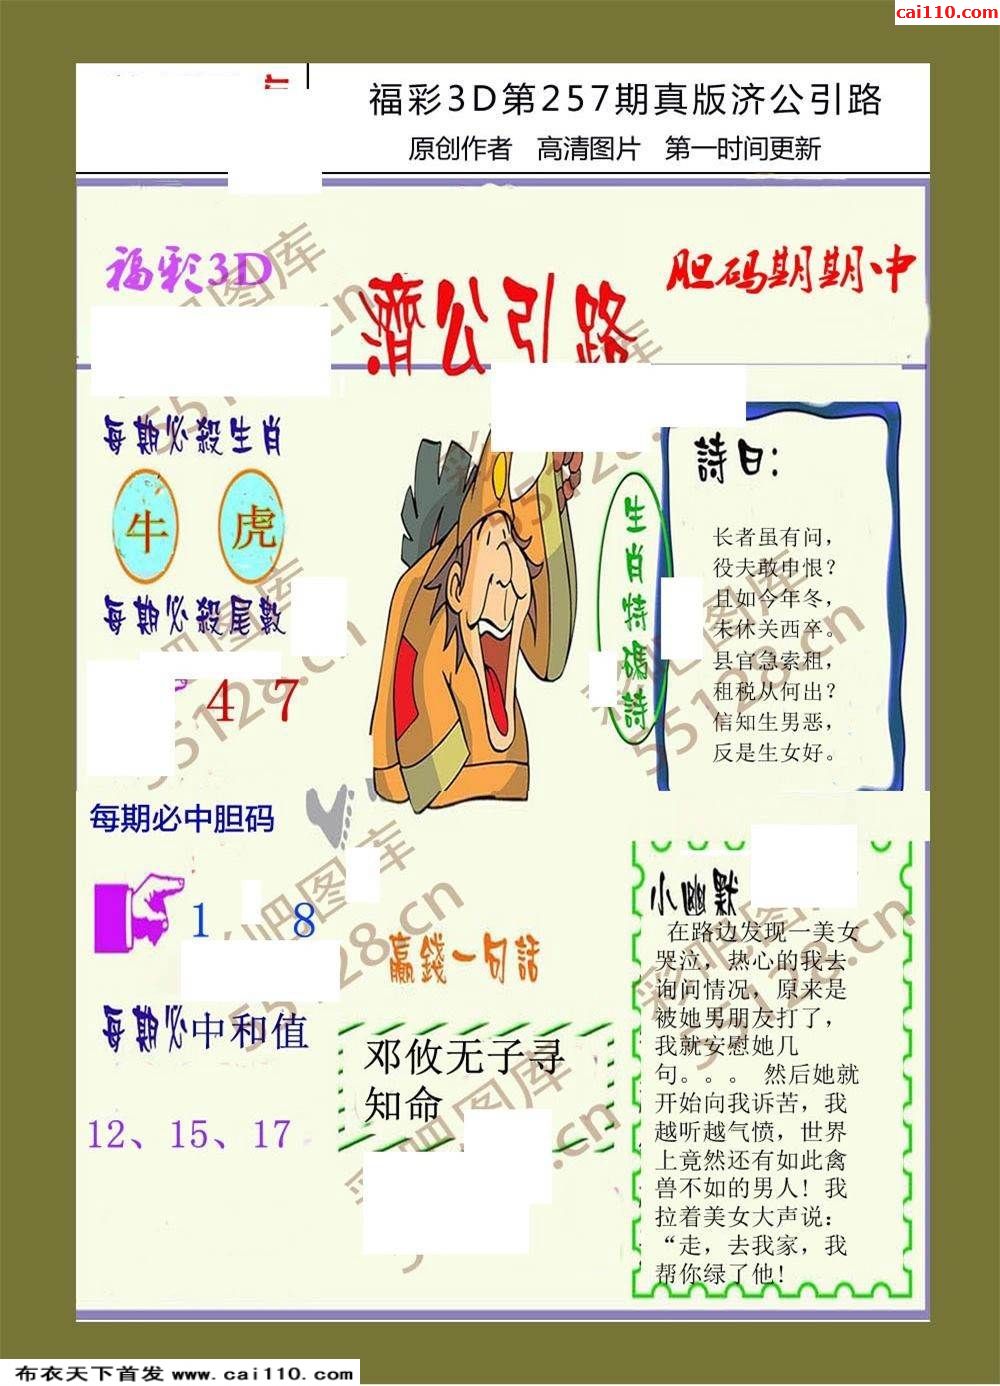 cai110.com
福彩3D第257期真版济公引路
原创作者 高清图片 第一时间更新
福彩3D
濟公引路
胆码期期中
每期必殺生肖
牛 虎
每期必殺尾數
4 7
每期必中胆码
1 8
每期必中和值
12、15、17
生肖特碼詩
詩曰:
长者虽有问，
役夫敢申恨？
且如今年冬，
未休关西卒。
县官急索租，
租税从何出？
信知生男恶，
反是生女好。
赢錢一句話
邓攸无子寻
知命
小幽默
在路边发现一美女
哭泣，热心的我去
询问情况，原来是
被她男朋友打了，
我就安慰她几
句。。。 然后她就
开始向我诉苦，我
越听越气愤，世界
上竟然还有如此禽
兽不如的男人！我
拉着美女大声说：
“走，去我家，我
帮你绿了他!
彩吧图库
55128.cn
彩吧图库
55128.cn
彩吧图库
55128.cn
彩吧图库
55128.cn
彩吧图库
55128.cn
彩吧图库
55128.cn
彩吧图库
55128.cn
布衣天下首发 www.cai110.com